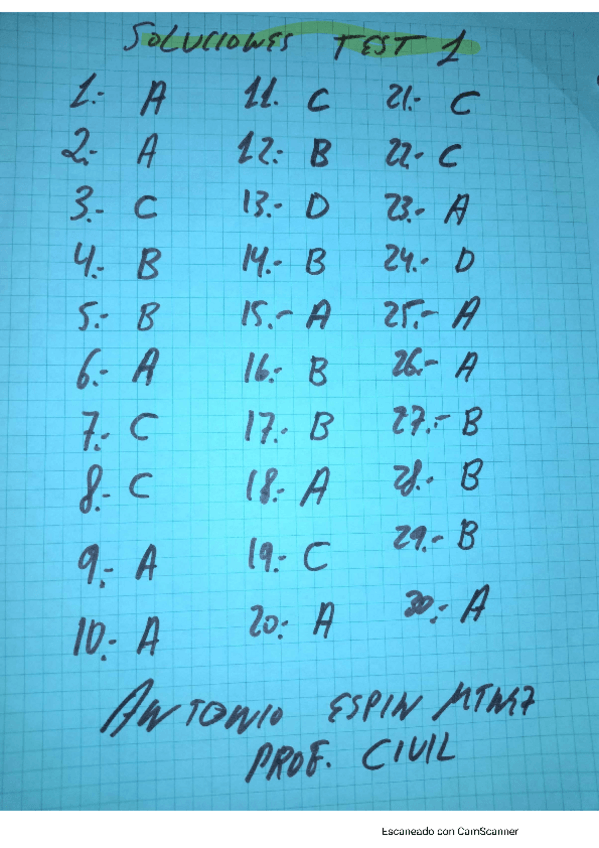 SOLUCIONES TEST 1
1.- A 11. C 21.- C
2.- A 12.- B 22.- C
3.- C 13.- D 23.- A
4.- B 14.- B 24.- D
5.- B 15.- A 25.- A
6.- A 16.- B 26.- A
7.- C 17.- B 27.- B
8.- C 18.- A 28.- B
9.- A 19.- C 29.- B
10.- A 20.- A 30.- A
ANTONIO ESPIN MTNEZ
PROF. CIVIL
Escaneado con CamScanner